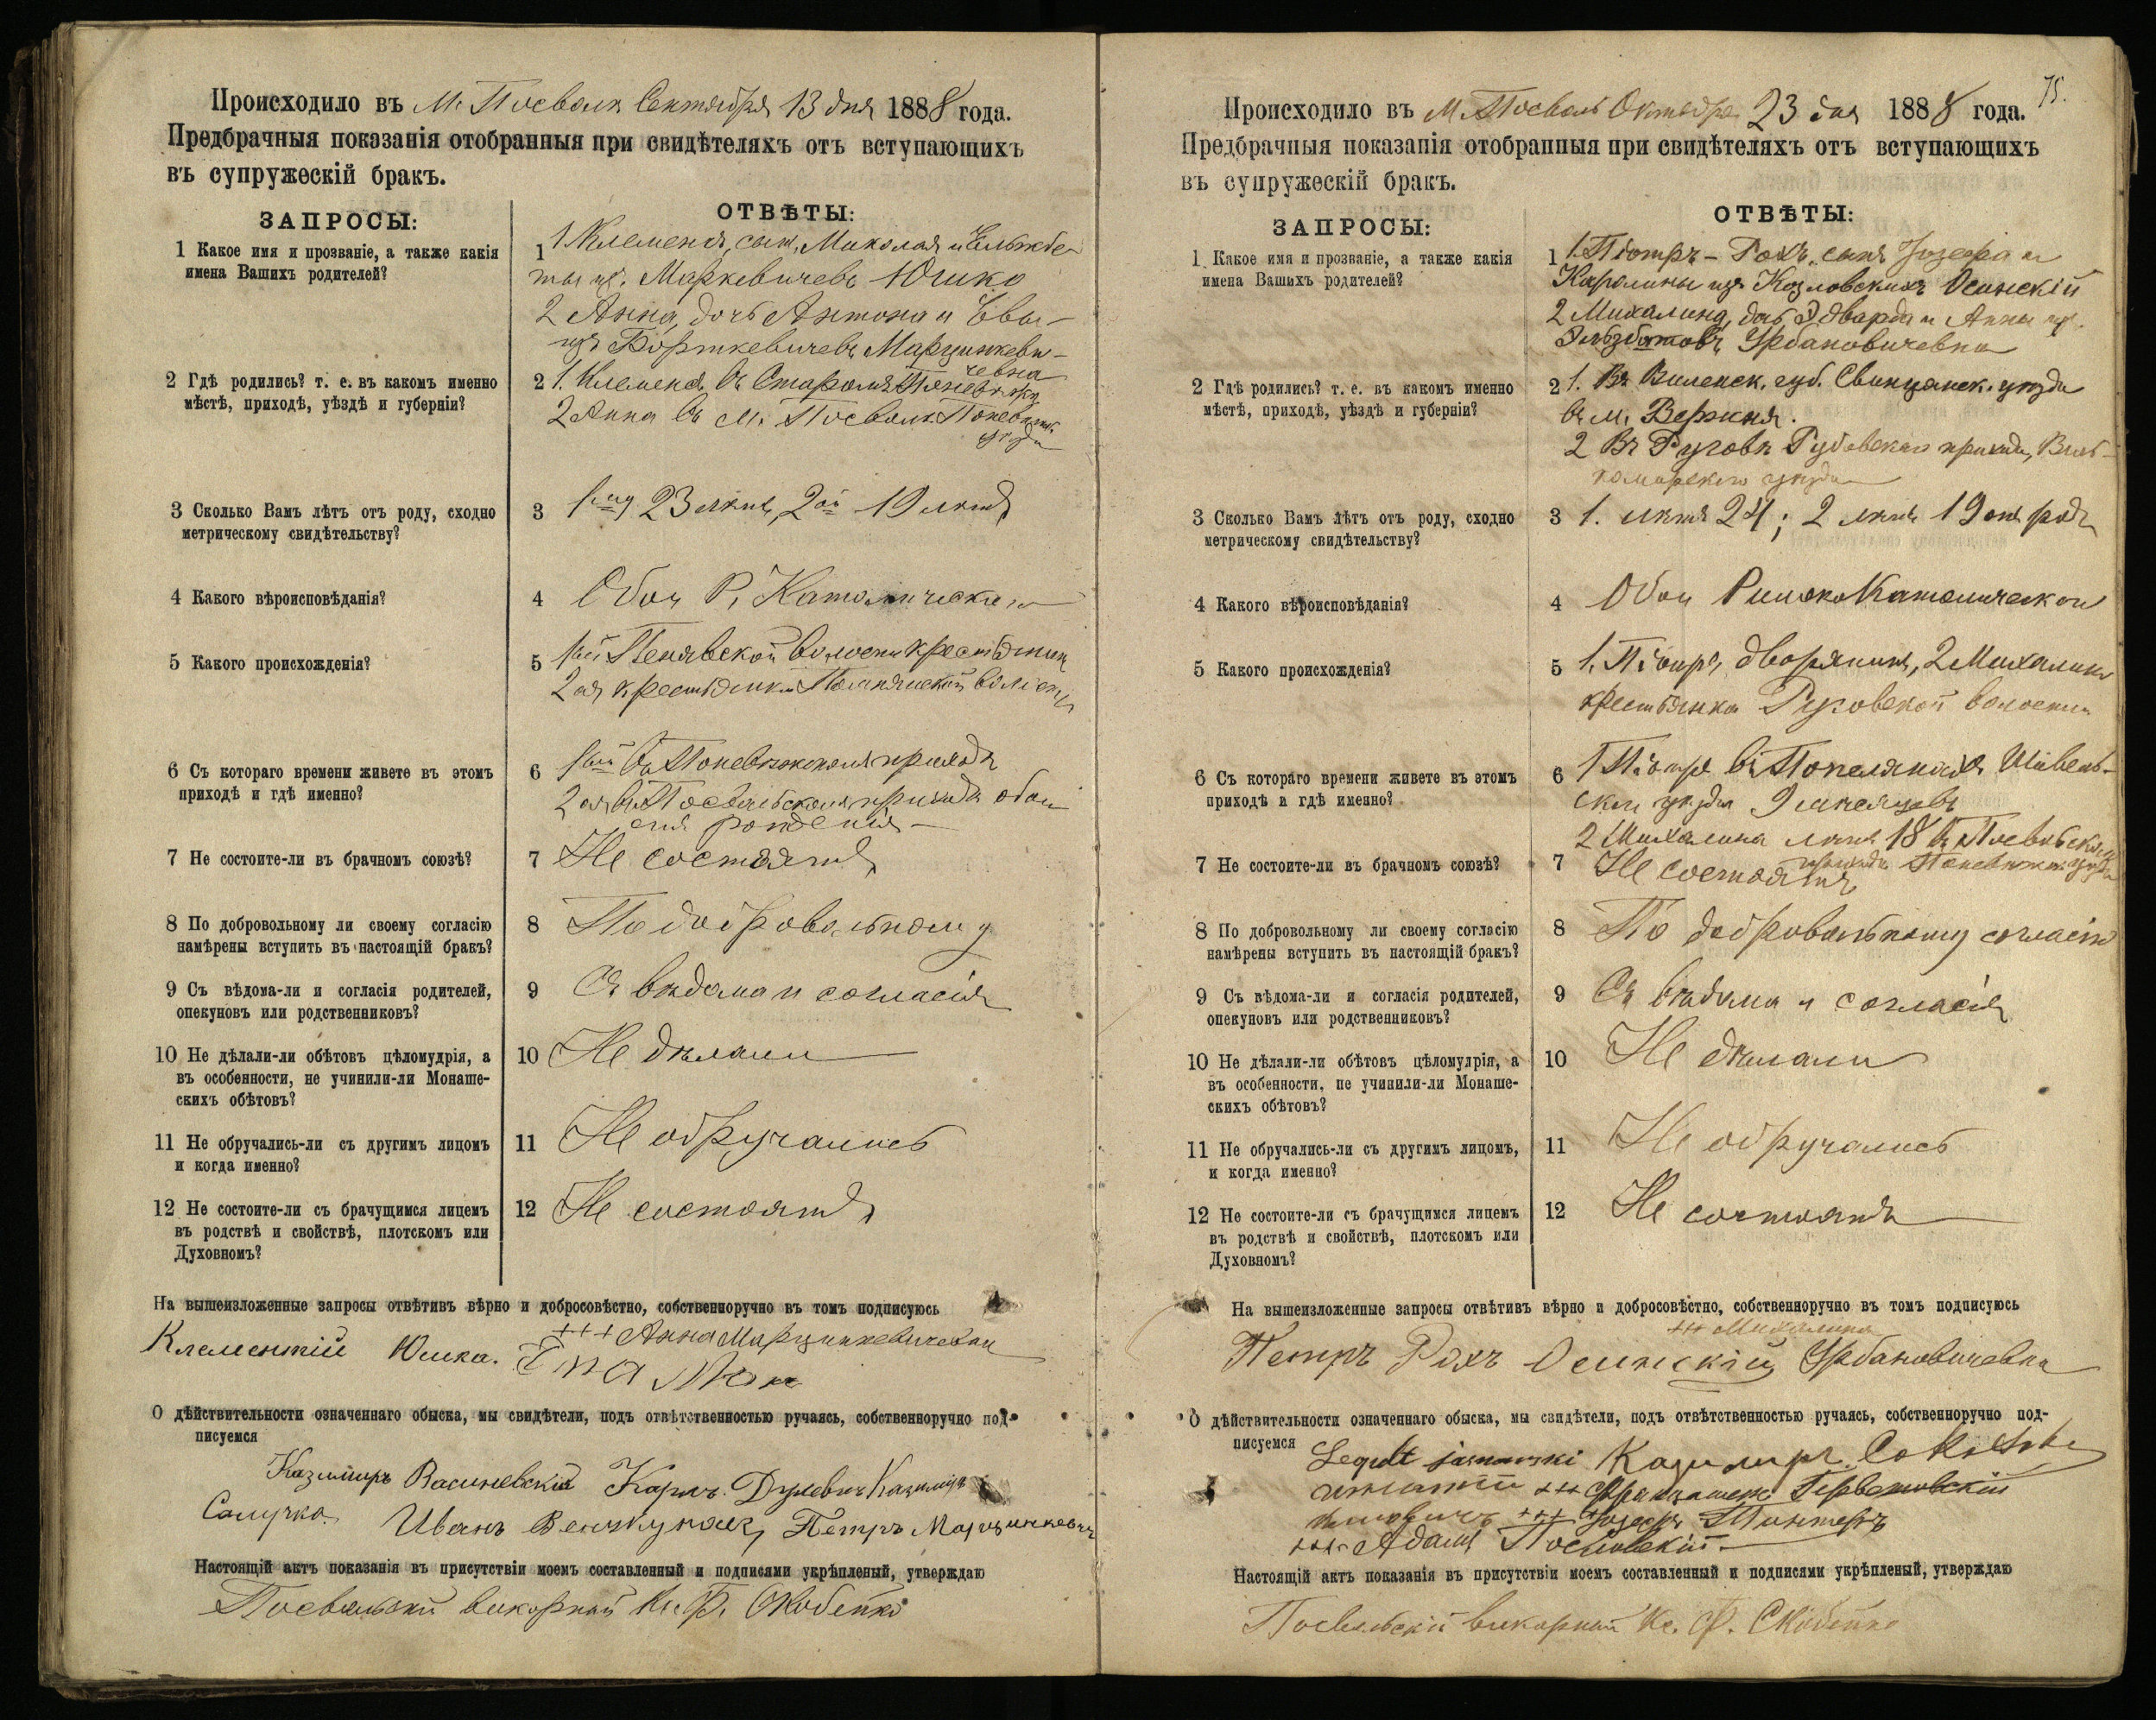 Происходило въ М. Посволѣ Сентября 13 дня 1888 года.
Предбрачныя показанія отобранныя при свидѣтеляхъ отъ вступающихъ
въ супружескій бракъ.
ЗАПРОСЫ:
ОТВѢТЫ:
1 Какое имя и прозваніе, а также какія
имена Вашихъ родителей?
1 1 Клеменсъ, сынъ Миколая и Ельжбе-
ты изъ Маркевичевъ Юшко
2 Анна, дочь Антона и Евы
изъ Борткевичевъ Марцинкеви-
чевна
2 Гдѣ родились? т. е. въ какомъ именно
мѣстѣ, приходѣ, уѣздѣ и губерніи?
2 1. Клеменсъ въ Старомъ Поневѣжѣ
2 Анна въ М. Посволѣ Поневѣж.
уѣзда
3 Сколько Вамъ лѣтъ отъ роду, сходно
метрическому свидѣтельству?
3 1му 23 лѣтъ, 2ой 19 лѣтъ
4 Какого вѣроисповѣданія?
4 Обои Р. Католическаго
5 Какого происхожденія?
5 1ый волости крестьянин
2ая крестьянка волости
6 Съ котораго времени живете въ этомъ
приходѣ и гдѣ именно?
6 1ый въ Поневѣжскомъ приходѣ
2ая въ Посвольскомъ приходѣ обои
отъ рожденія
7 Не состоите-ли въ брачномъ союзѣ?
7 Не состоятъ
8 По добровольному ли своему согласію
намѣрены вступить въ настоящій бракъ?
8 По добровольному
9 Съ вѣдома-ли и согласія родителей,
опекуновъ или родственниковъ?
9 Съ вѣдома и согласія
10 Не дѣлали-ли обѣтовъ цѣломудрія, а
въ особенности, не учинили-ли Монаше-
скихъ обѣтовъ?
10 Не дѣлали
11 Не обручались-ли съ другимъ лицомъ
и когда именно?
11 Не обручались
12 Не состоите-ли съ брачущимся лицемъ
въ родствѣ и свойствѣ, плотскомъ или
Духовномъ?
12 Не состоятъ
На вышеизложенные запросы отвѣтивъ вѣрно и добросовѣстно, собственноручно въ томъ подписуюсь
+++ Анна Марцинкевичевна
Клементій Юшка.
О дѣйствительности означеннаго обыска, мы свидѣтели, подъ отвѣтственностью ручаясь, собственноручно под-
писуемся
Казимиръ Василевскій Карлъ Казимиръ
Иванъ Петръ Марцинкевичъ
Настоящій актъ показанія въ присутствіи моемъ составленный и подписями укрѣпленый, утверждаю
Посвольскій викарный Кс. Ф. Скобейко
75.
Происходило въ М. Посволь Октября 23 дня 1888 года.
Предбрачныя показанія отобранныя при свидѣтеляхъ отъ вступающихъ
въ супружескій бракъ.
ЗАПРОСЫ:
ОТВѢТЫ:
1 Какое имя и прозваніе, а также какія
имена Вашихъ родителей?
1 1. Піотръ-Рохъ, сынъ Іозефа и
Каролины изъ Козловскихъ Осинскій
2 Михалина, дочь Эдварда и Анны изъ
Урбановичевна
2 Гдѣ родились? т. е. въ какомъ именно
мѣстѣ, приходѣ, уѣздѣ и губерніи?
2 1. Въ Виленск. губ. Свинцянск. уѣзда
въ м.
2 Въ прихода, Виль-
комирскаго уѣзда
3 Сколько Вамъ лѣтъ отъ роду, сходно
метрическому свидѣтельству?
3 1. лѣтъ 24; 2 лѣтъ 19 отъ роду
4 Какого вѣроисповѣданія?
4 Обои Римско Католическаго
5 Какого происхожденія?
5 1. Піотръ, дворянинъ, 2 Михалина
крестьянка волости
6 Съ котораго времени живете въ этомъ
приходѣ и гдѣ именно?
6 1 Піотръ въ Попелянахъ Шавель-
скаго уѣзда 9 мѣсяцевъ
2 Михалина лѣтъ 18 въ Посвольскомъ
приходѣ Поневѣжск. уѣзда
7 Не состоите-ли въ брачномъ союзѣ?
7 Не состоятъ
8 По добровольному ли своему согласію
намѣрены вступить въ настоящій бракъ?
8 По добровольному согласію
9 Съ вѣдома-ли и согласія родителей,
опекуновъ или родственниковъ?
9 Съ вѣдома и согласія
10 Не дѣлали-ли обѣтовъ цѣломудрія, а
въ особенности, не учинили-ли Монаше-
скихъ обѣтовъ?
10 Не дѣлали
11 Не обручались-ли съ другимъ лицомъ,
и когда именно?
11 Не обручались
12 Не состоите-ли съ брачущимся лицемъ
въ родствѣ и свойствѣ, плотскомъ или
Духовномъ?
12 Не состоятъ
На вышеизложенные запросы отвѣтивъ вѣрно и добросовѣстно, собственноручно въ томъ подписуюсь
+++ Михалина
Петръ Рохъ Осинскій Урбановичевна
О дѣйствительности означеннаго обыска, мы свидѣтели, подъ отвѣтственностью ручаясь, собственноручно под-
писуемся
Казимиръ
+++
+++ Іозефъ
+++ Адамъ
Настоящій актъ показанія въ присутствіи моемъ составленный и подписями укрѣпленый, утверждаю
Посвольскій викарный Кс. Ф. Скобейко